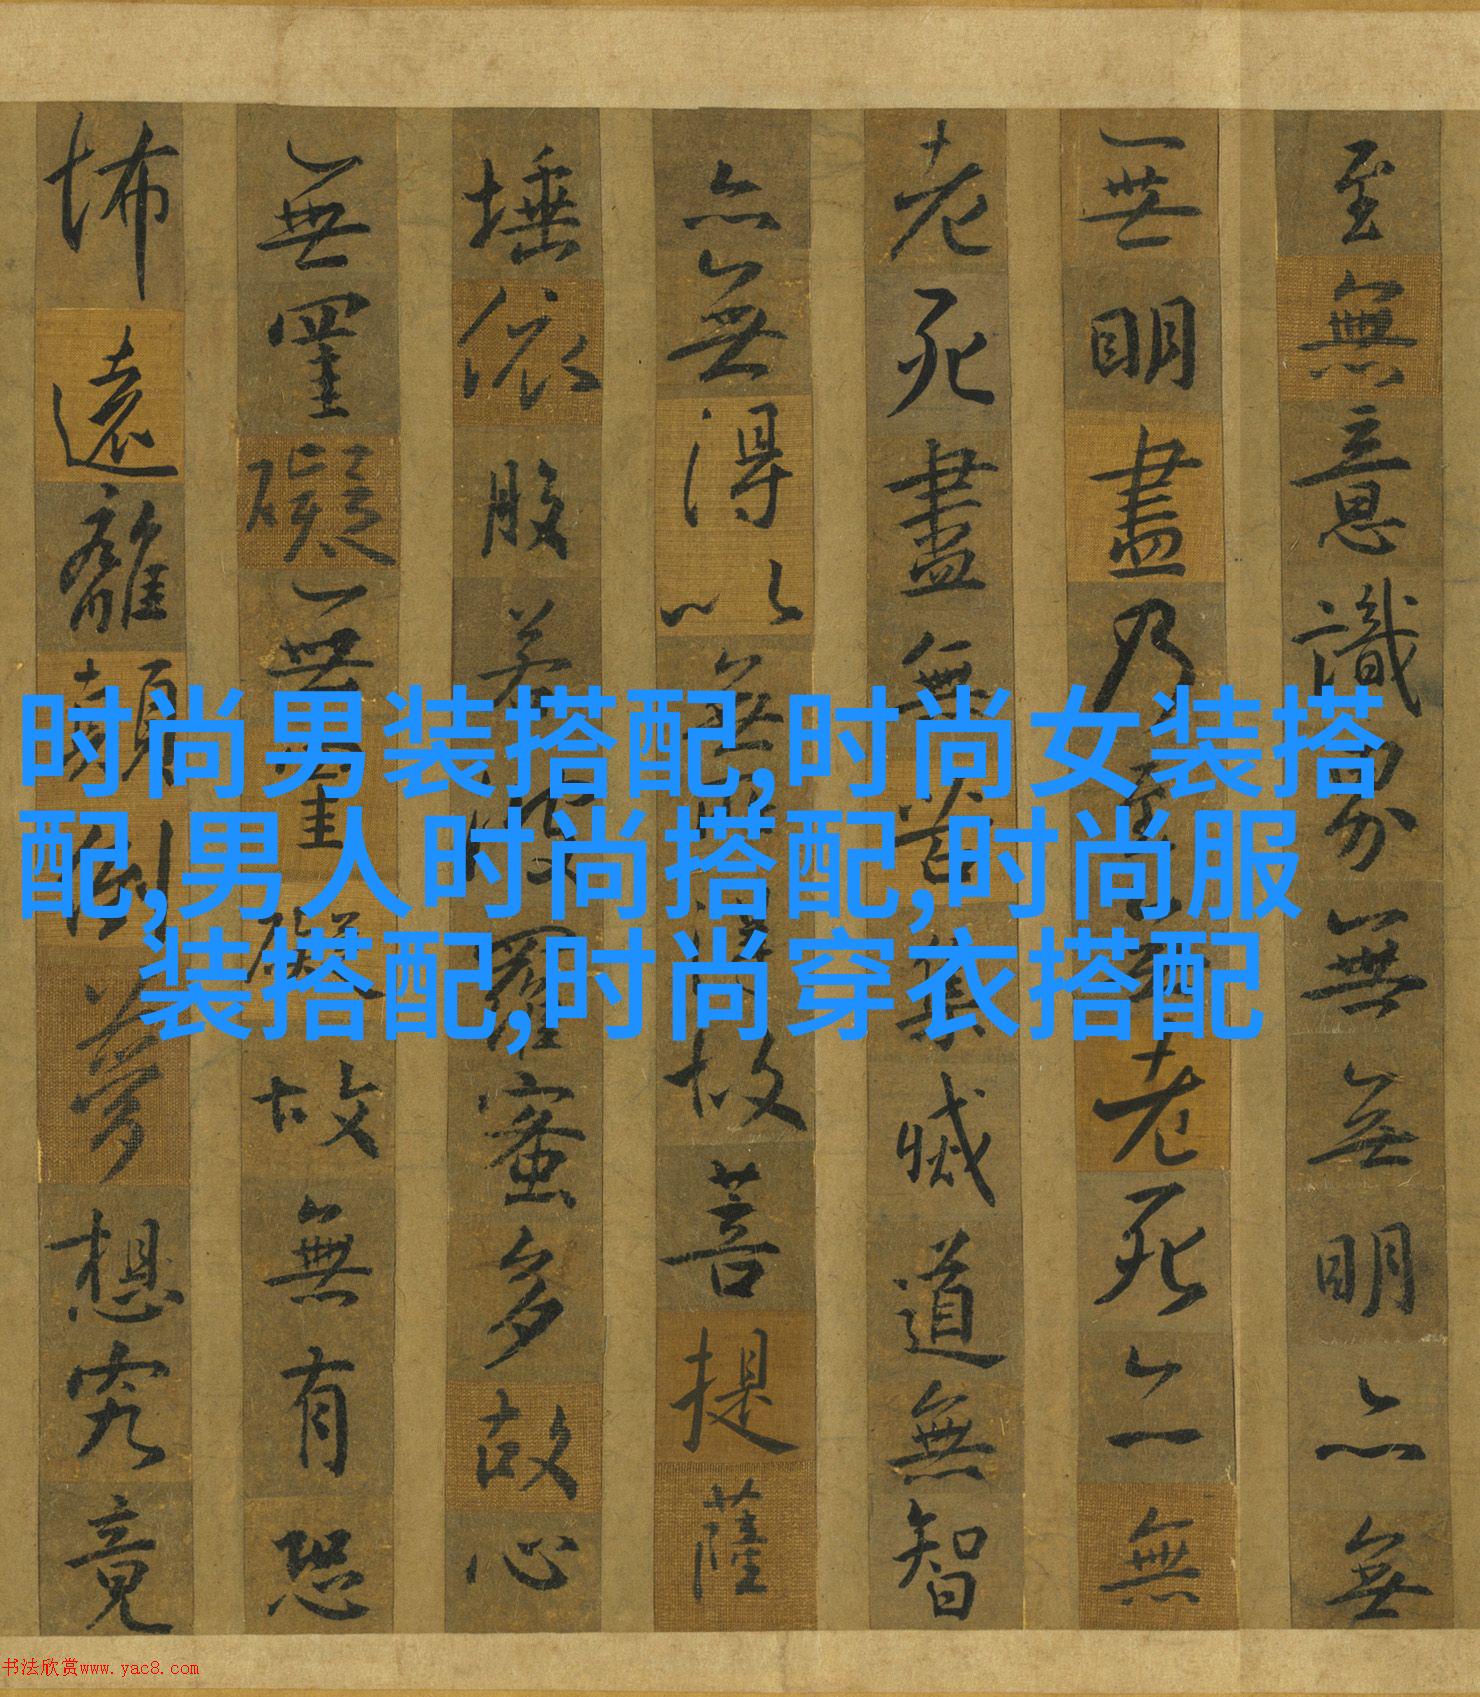 至無意識界無無明亦無
無明盡乃至無老死亦無
老死盡無苦集滅道無智
亦無得以無所得故菩提薩
埵依般若波羅蜜多故心
無罣礙無罣礙故無有恐
怖遠離顛倒夢想究竟
时尚男装搭配,时尚女装搭
配,男人时尚搭配,时尚服
装搭配,时尚穿衣搭配
书法欣赏www.yac8.com